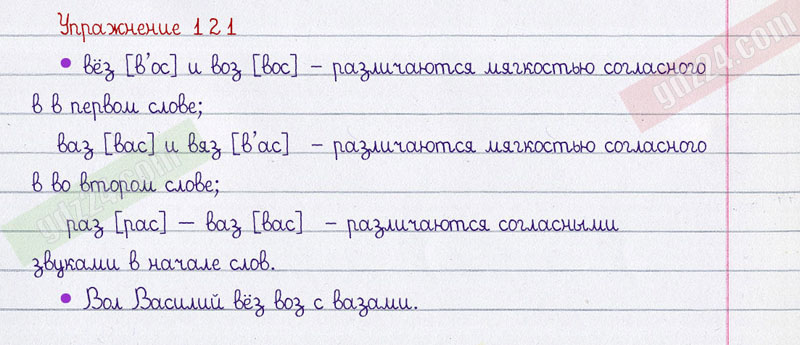 Упражнение 121
• вёз [в'ос] и воз [вос] – различаются мягкостью согласного
в в первом слове;
ваз [вас] и вяз [в'ас] – различаются мягкостью согласного
в во втором слове;
раз [рас] – ваз [вас] – различаются согласными
звуками в начале слов.
• Вол Василий вёз воз с вазами.
gdz24.com
gdz24.com